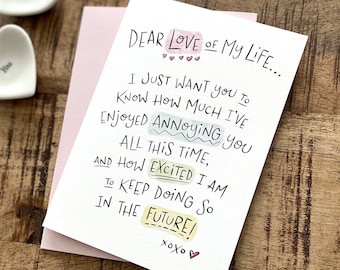 DEAR LOVE of MY LIFE...
I JUST WANT YOU TO
KNOW HOW MUCH I'VE
ENJOYED ANNOYING YOU
ALL THIS TIME,
AND HOW EXCITED I AM
TO KEEP DOING SO
IN THE FUTURE!
XOXO
you